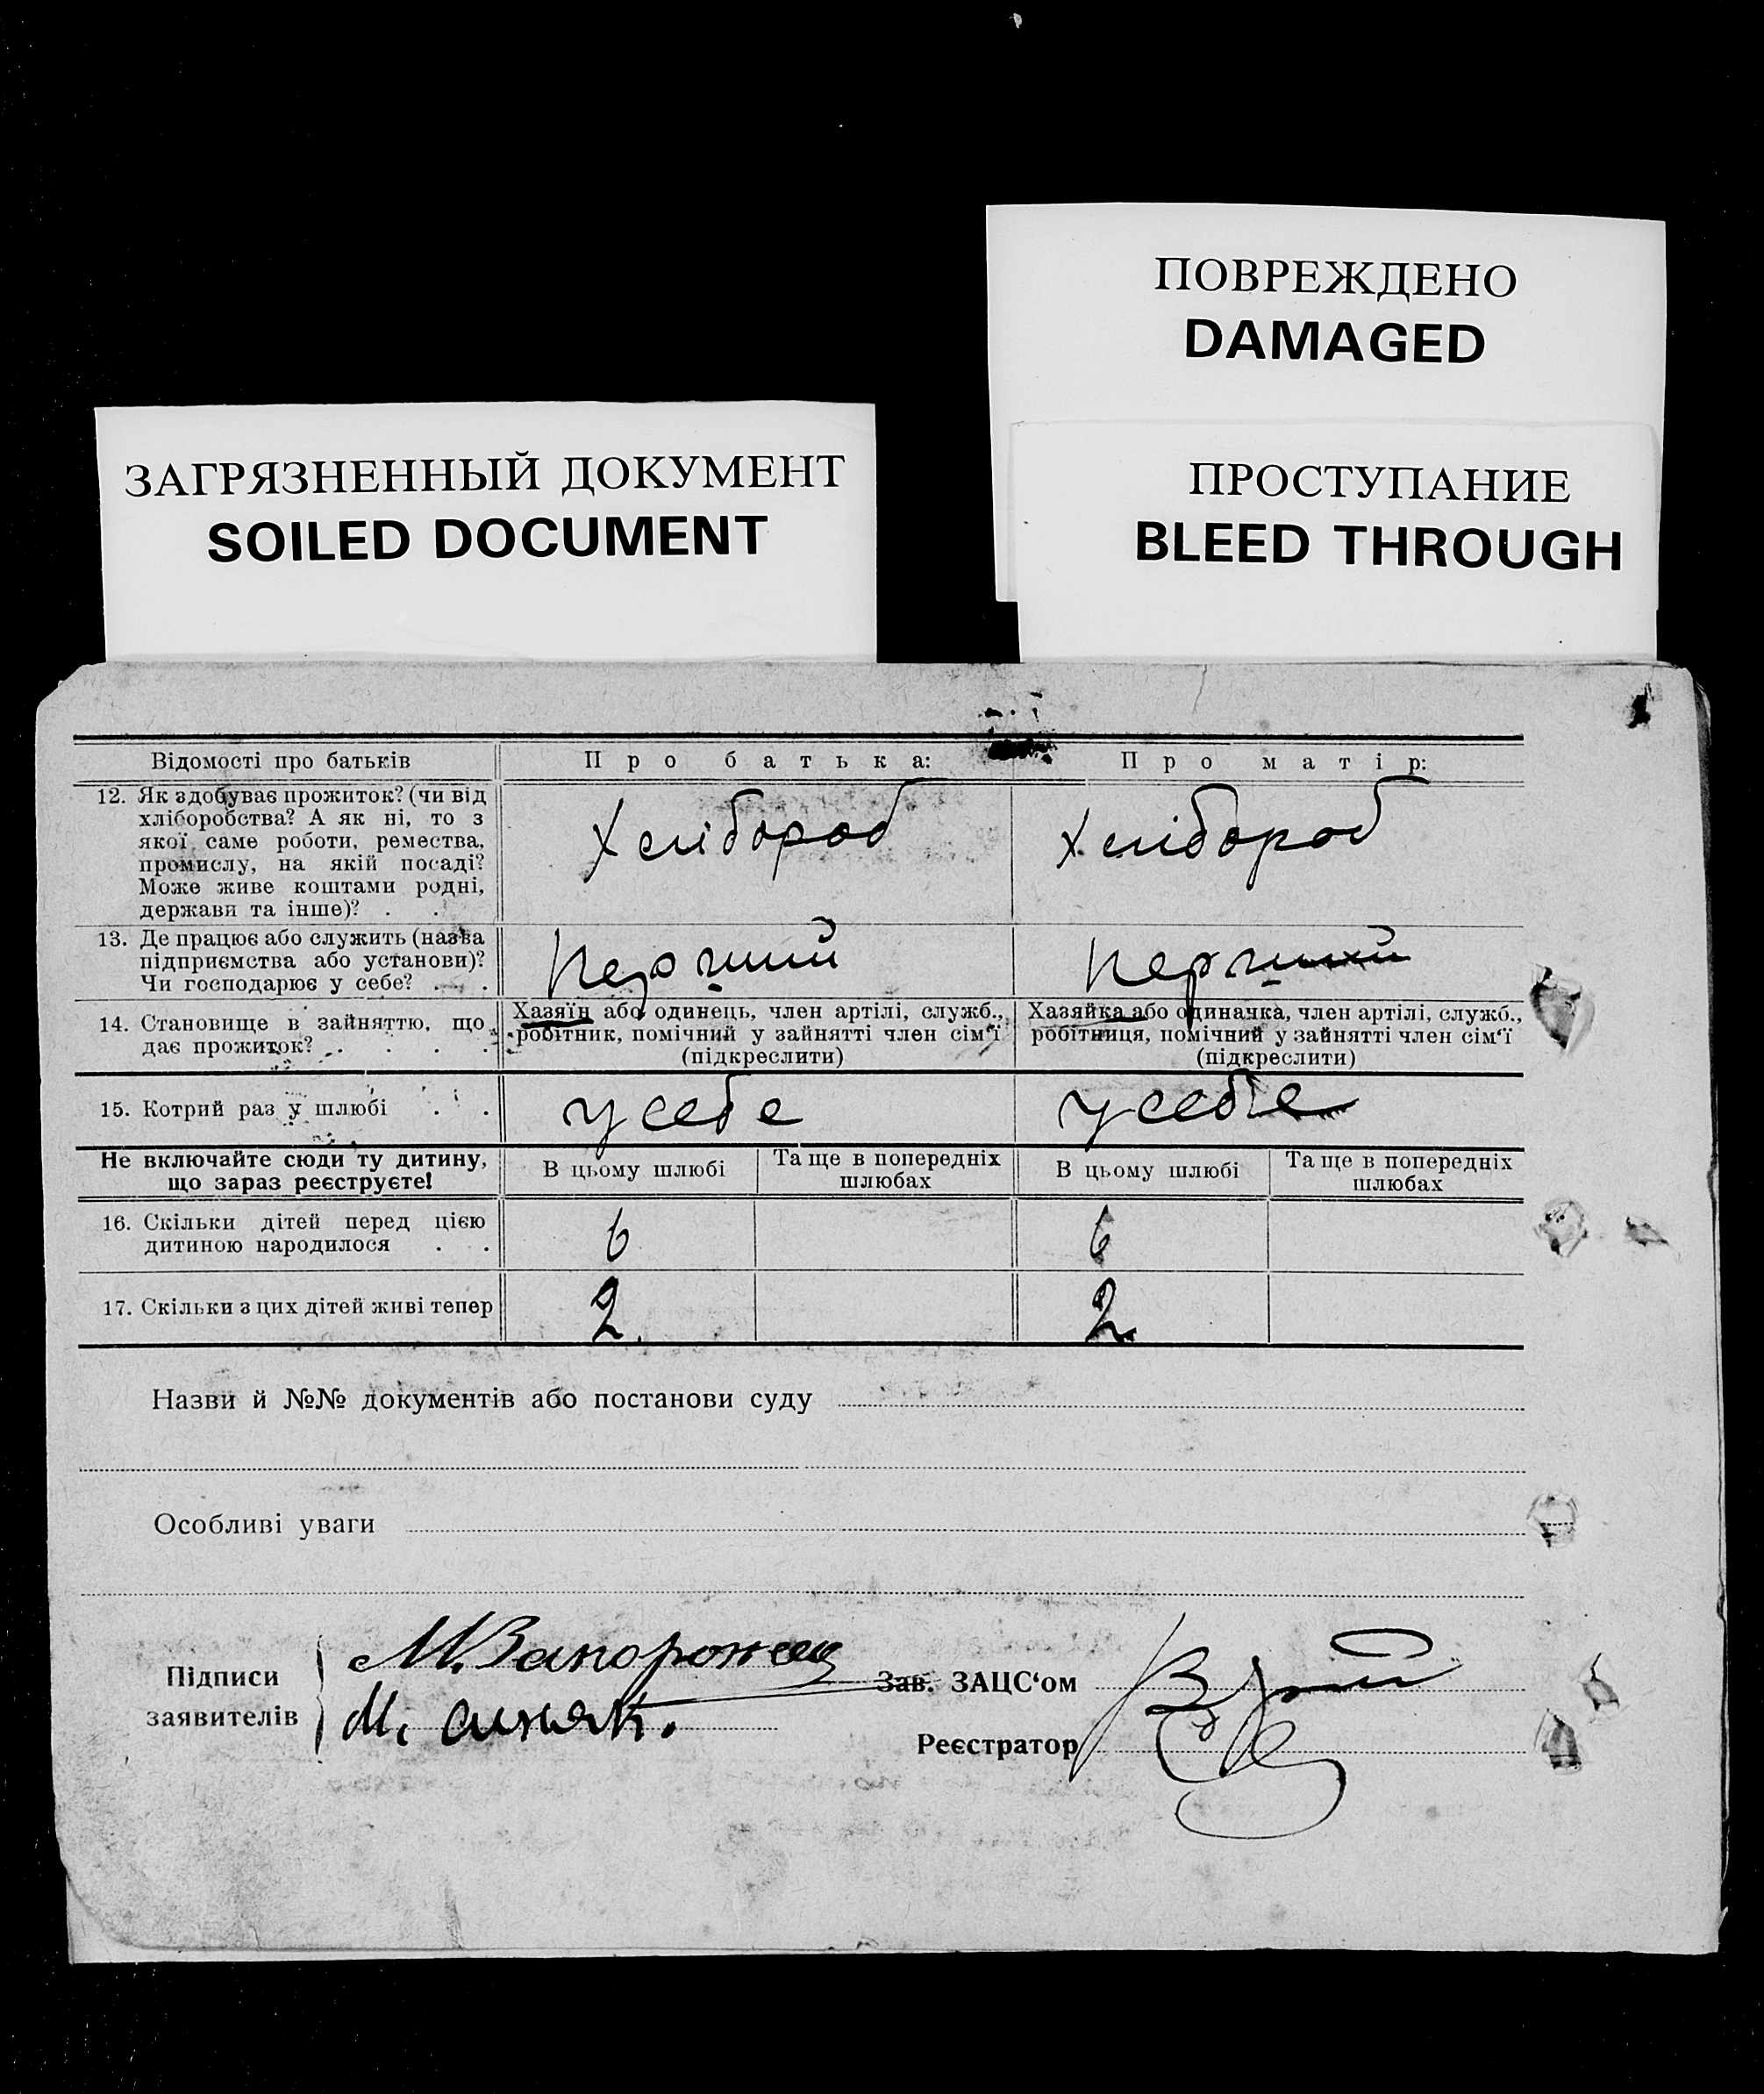 ПОВРЕЖДЕНО
DAMAGED
ЗАГРЯЗНЕННЫЙ ДОКУМЕНТ
SOILED DOCUMENT
ПРОСТУПАНИЕ
BLEED THROUGH
Відомості про батьків
Про батька:
Про матір:
12. Як здобуває прожиток? (чи від
хліборобства? А як ні, то з
якої саме роботи, ремества,
промислу, на якій посаді?
Може живе коштами родні,
держави та інше)? . .
Хлібороб
Хлібороб
13. Де працює або служить (назва
підприємства або установи)?
Чи господарює у себе? . . .
14. Становище в зайняттю, що
дає прожиток? . . . .
Хазяїн або одинець, член артілі, служб.,
робітник, помічний у зайнятті член сім'ї
(підкреслити)
Хазяйка або одиначка, член артілі, служб.,
робітниця, помічний у зайнятті член сім'ї
(підкреслити)
15. Котрий раз у шлюбі . . .
у себе
у себе
Не включайте сюди ту дитину,
що зараз реєструєте!
В цьому шлюбі
Та ще в попередніх
шлюбах
В цьому шлюбі
Та ще в попередніх
шлюбах
16. Скільки дітей перед цією
дитиною народилося . .
6
6
17. Скільки з цих дітей живі тепер
2.
2.
Назви й №№ документів або постанови суду
Особливі уваги
Підписи
заявителів
М. Запорожец
М.
Зав. ЗАЦС'ом
Реєстратор